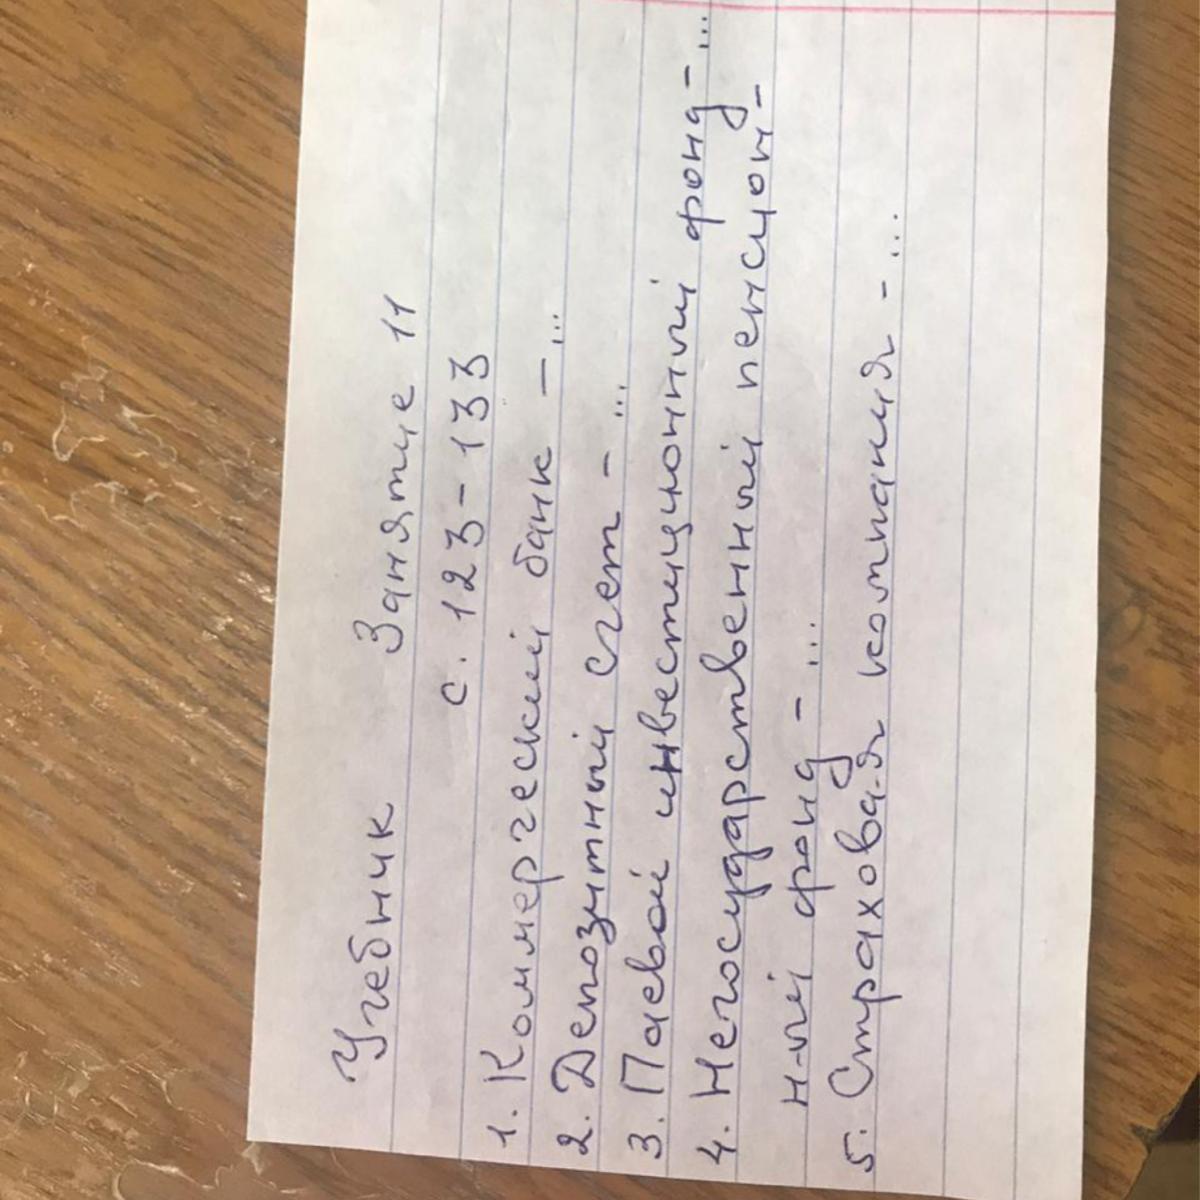 Учебник Занятие 11
с. 123-133
1. Коммерческий банк - ...
2. Депозитный счет - ...
3. Паевой инвестиционный фонд - ...
4. Негосударственный пенсион-
ный фонд - ...
5. Страховая компания - ...